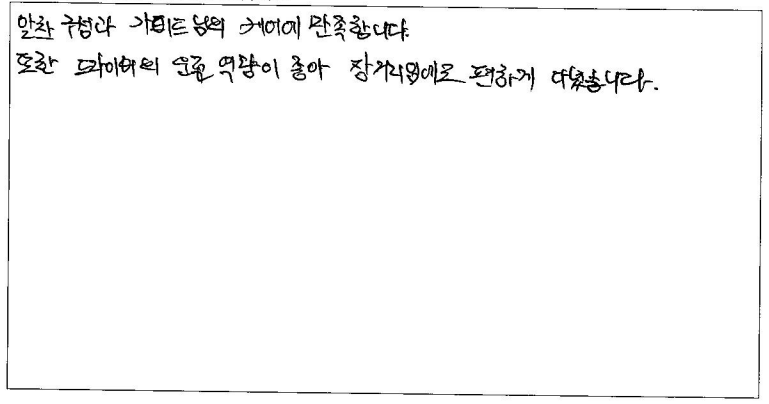 알찬 구성과 가이드님의 케어에 만족합니다.
또한 드라이버의 운전 역량이 좋아 장거리임에도 편하게 다녔습니다.